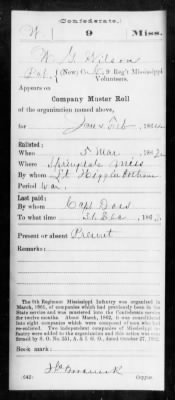 Confederate.
W 9 Miss.
W. G. Wilson
Pvt., (New) Co. , 9 Reg't Mississippi
Volunteers.
Appears on
Company Muster Roll
of the organization named above,
for Jan & Feb, 1864
Enlisted:
When 5 Mar, 186
Where Springdale Miss
By whom Lt Higginbotham
Period War
Last paid:
By whom Capt
To what time 31 Dec, 1863
Present or absent Present
Remarks:
The 9th Regiment Mississippi Infantry was organized in
March, 1861, of companies which had previously been in the
State service and was mustered into the Confederate service
for twelve months. About March, 1862, it was constituted
into eight companies which were composed of men who had
re-entered. Two independent companies of Mississippi in-
fantry were added to organization and this action was con-
firmed by S. O. No. 251, A. & I. G. O., dated October 27, 1862.
Book mark:
(642) Copyist.